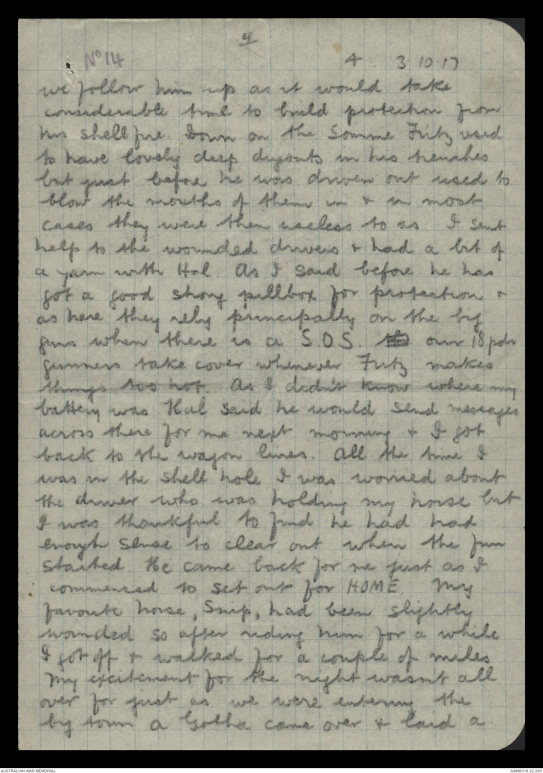 4
No 14
4 3 10 17
we follow him up as it would take
considerable time to build protection from
his shell fire. Down on the Somme Fritz used
to have lovely deep dugouts in his trenches
but just before he was driven out used to
blow the mouths of them in & in most
cases they were then useless to us I sent
help to the wounded drivers & had a bit of
a yarn with Hal. As I said before he has
got a good strong pillbox for protection &
as here they rely principally on the big
guns when there is a S O S. our 18 pdr
gunners take cover whenever Fritz makes
things too hot. As I didn't know where my
battery was Hal said he would send messages
across there for me next morning & I got
back to the wagon lines. All the time I
was in the shell hole I was worried about
the driver who was holding my horse but
I was thankful to find he had had
enough sense to clear out when the fun
started. He came back for me just as I
commenced to set out for HOME. My
favourite horse, Snip, had been slightly
wounded so after riding him for a while
I got off & walked for a couple of miles
My excitement for the night wasn't all
over for just as we were entering the
big town a Gotha came over & laid a
AUSTRALIAN WAR MEMORIAL